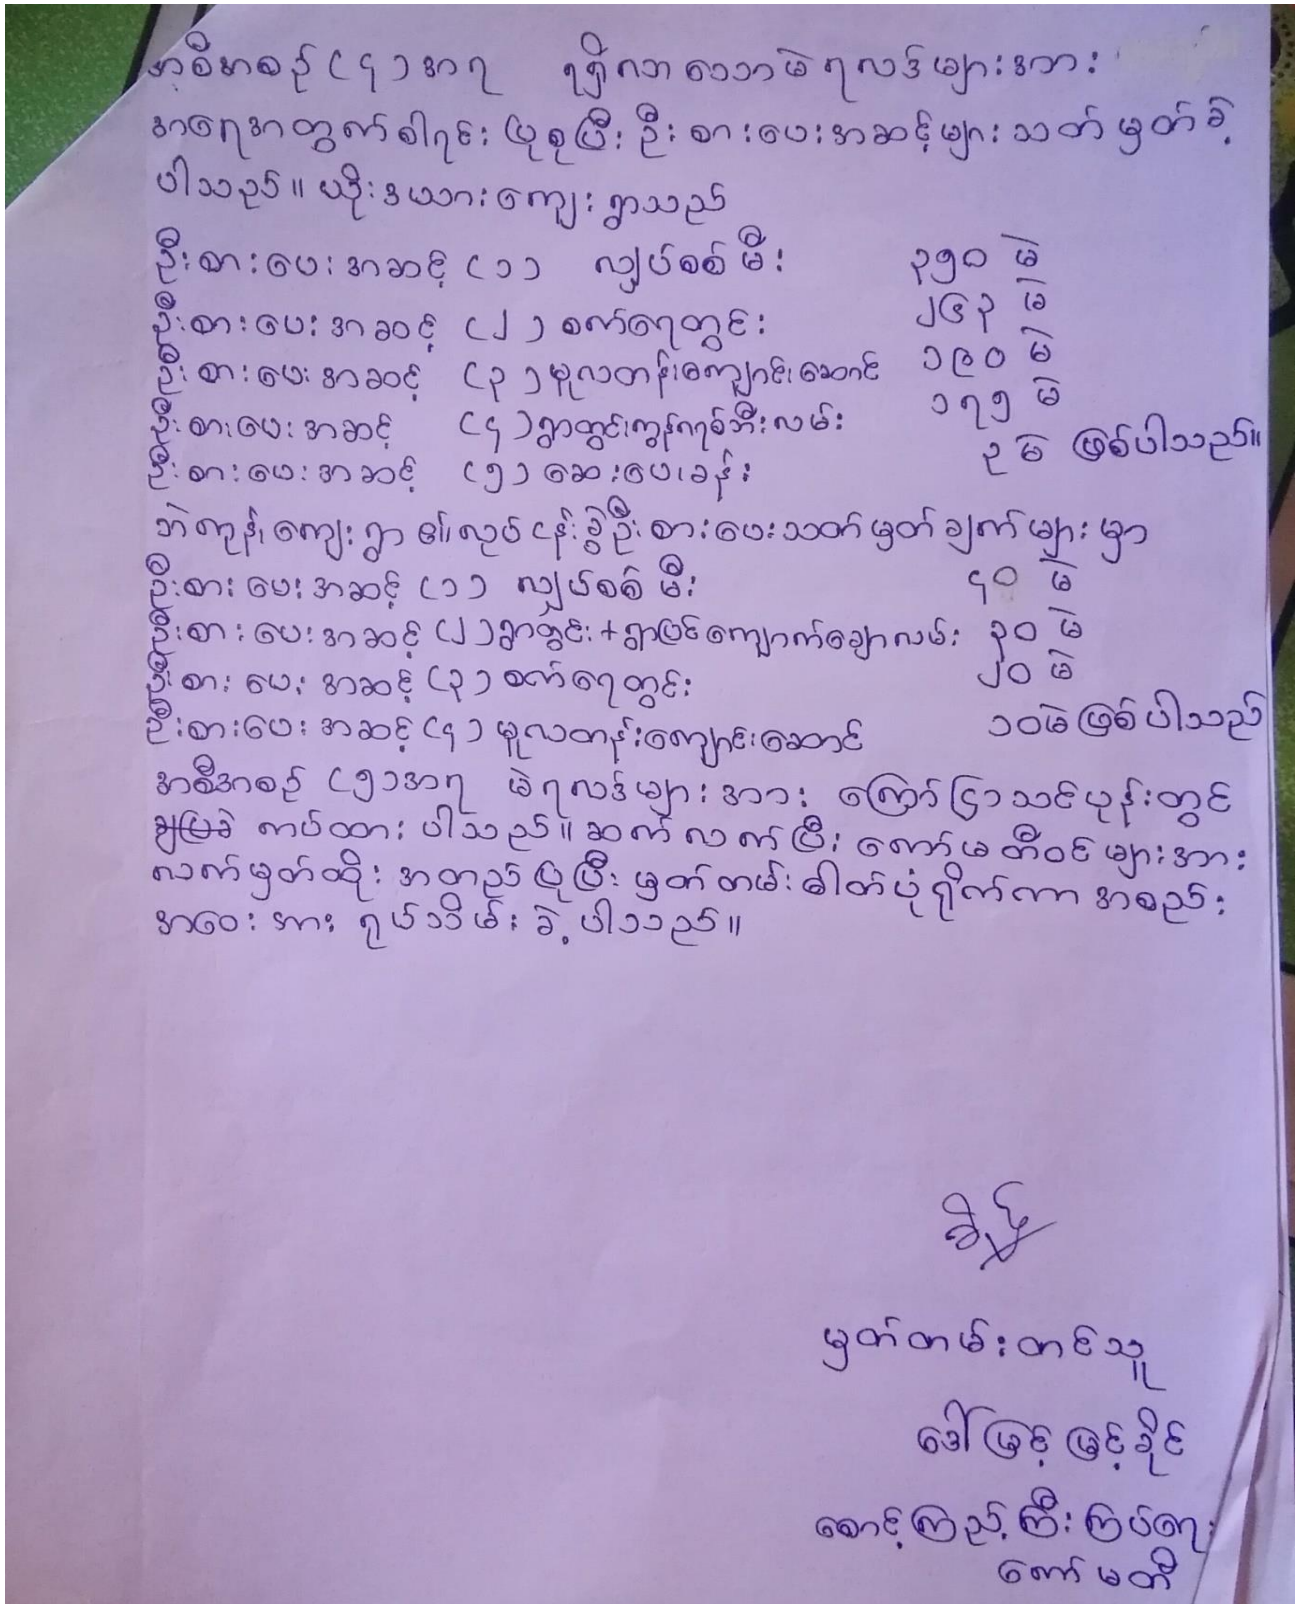 အစီအစဉ် (၄) အရ ရရှိလာသောမဲရလဒ်များအား
အရေအတွက်စာရင်းပြုစုပြီး ဦးစားပေးအဆင့်များသတ်မှတ်ခဲ့
ပါသည်။ ယိုးဒယားကျေးရွာသည်
ဦးစားပေးအဆင့် (၁) လျှပ်စစ်မီး ၃၅၀ မဲ
ဦးစားပေးအဆင့် (၂) စက်ရေတွင်း ၂၆၃ မဲ
ဦးစားပေးအဆင့် (၃) မူလတန်းကျောင်းဆောင် ၁၉၀ မဲ
ဦးစားပေးအဆင့် (၄) ရွာတွင်းကွန်ကရစ်တီးလမ်း ၁၇၅ မဲ
ဦးစားပေးအဆင့် (၅) ဆေးပေးခန်း ၃ မဲ ဖြစ်ပါသည်။
ကျေးရွာ၏ လုပ်ငန်းခွဲဦးစားပေးသတ်မှတ်ချက်များမှာ
ဦးစားပေးအဆင့် (၁) လျှပ်စစ်မီး ၄၀ မဲ
ဦးစားပေးအဆင့် (၂) ရွာတွင်း+ရွာပြင်ကျောက်ချောလမ်း ၃၀ မဲ
ဦးစားပေးအဆင့် (၃) စက်ရေတွင်း ၂၀ မဲ
ဦးစားပေးအဆင့် (၄) မူလတန်းကျောင်းဆောင် ၁၀မဲဖြစ်ပါသည်
အစီအစဉ် (၅) အရ မဲရလဒ်များအား ကြော်ငြာသင်ပုန်းတွင်
ကပ်ထားပါသည်။ ဆက်လက်ပြီး ကော်မတီဝင်များအား
လက်မှတ်ထိုး အတည်ပြုပြီး မှတ်တမ်းဓါတ်ပုံရိုက်ကာ အစည်း
အဝေးအား ရုပ်သိမ်းခဲ့ပါသည်။
မှတ်တမ်းတင်သူ
ဒေါ်ဖြင့်ဖြင့်ခိုင်
စောင့်ကြည့်ကြီးကြပ်ရေး
ကော်မတီ